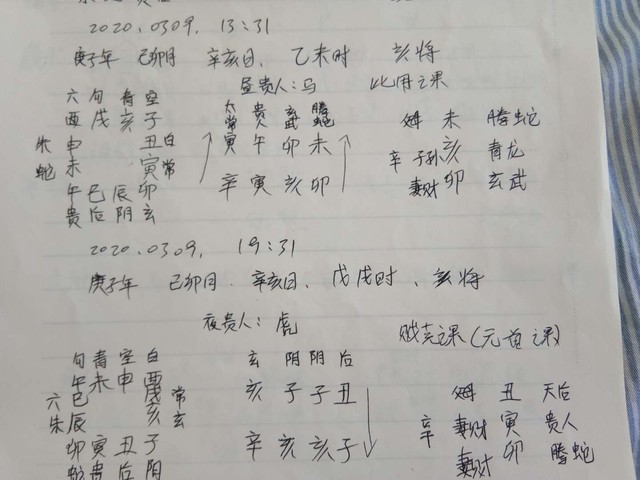 2020.0309, 13:31
庚子年 己卯月 辛亥日, 乙未时 亥将
昼贵人:马 比用之课
六 句 青 空
酉 戌 亥 子
朱 申 丑 白
蛇 未 寅 常
午 巳 辰 卯
贵 后 阴 玄
太常 贵 玄武 腾蛇
寅 午 卯 未
辛 寅 亥 卯
未 腾蛇
辛 子孙 亥 青龙
妻财 卯 玄武
2020.0309, 19:31
庚子年 己卯月. 辛亥日、戊戌时、亥将
夜贵人:虎 贼克之课(元首之课)
句 青 空 白
午 未 申 酉
六 巳 戌 常
朱 辰 亥 玄
卯 寅 丑 子
蛇 贵 后 阴
玄 阴 阴 后
亥 子 子 丑
辛 亥 亥 子
丑 天后
辛 妻财 寅 贵人
妻财 卯 腾蛇